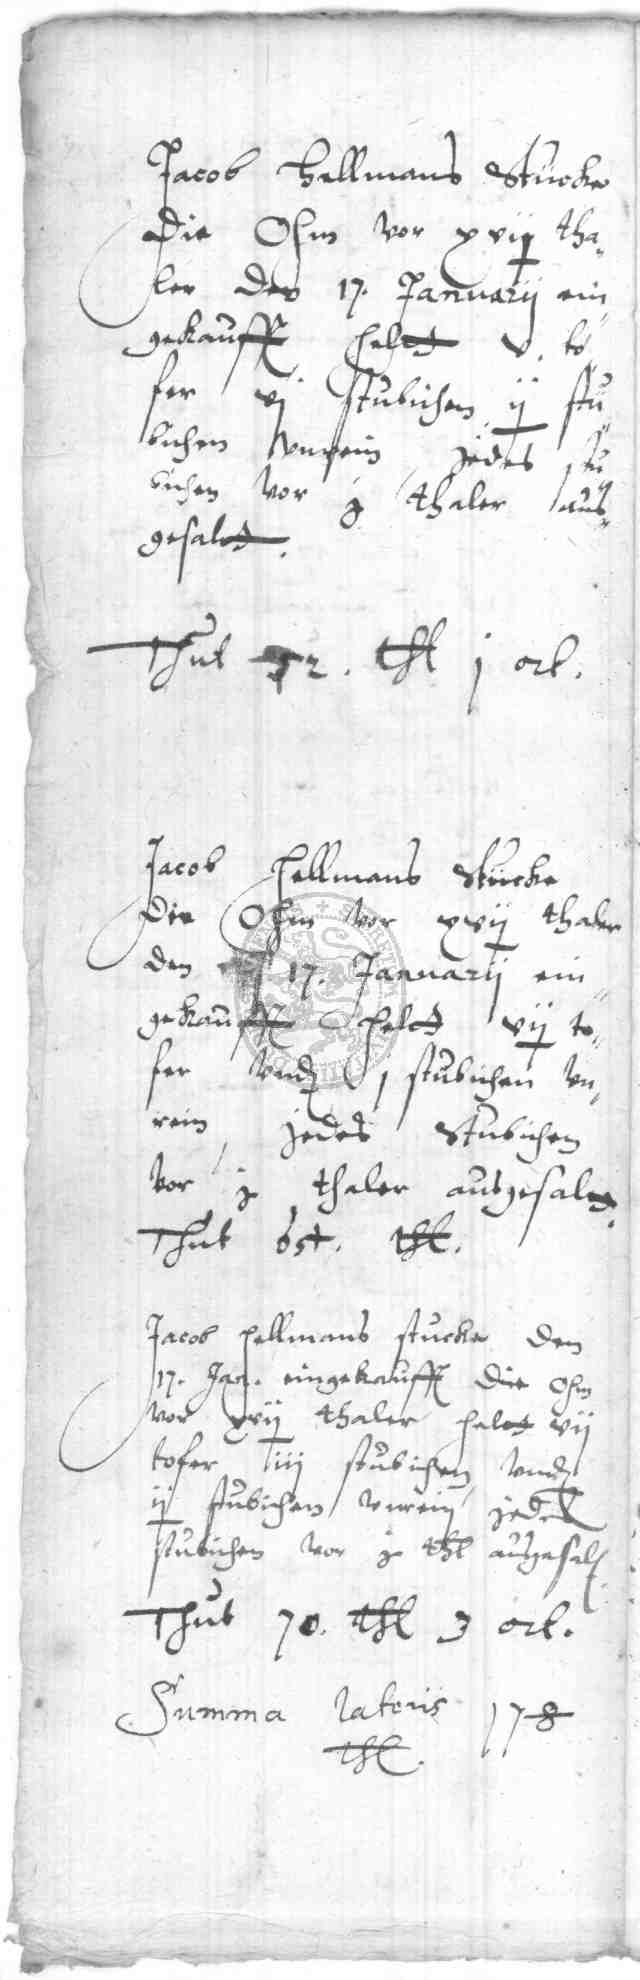 Jacob Hellmans Stucke
Die Ohm vor xvij tha„
ler den 17. Januarij ein„
gekaufft heltt v. to„
fer vj stubichen ij stu„
bichen vnrein, jedes stu„
bichen vor j thaler aus„
gesaltt.
Thut 52. thl j ort.
Jacob Hellmans Stucke
Die Ohm vor xvij thaler
den 17. Januarij ein„
gekaufft heltt vij to„
fer vnd j stubichen vn„
rein, jedes Stubichen
vor j thaler ausgesaltt.
Thut 55. thl.
Jacob Hellmans stucke den
17. Jan. eingekaufft die Ohm
vor xvij thaler heltt vij
tofer iij stubichen vnd
ij stubichen vnrein, jedes
stubichen vor j thl ausgesalt
Thut 70. thl 3 ort.
Summa lateris 178
thl.